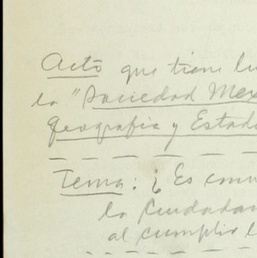 Acto que tiene lu
la "Sociedad Mex
Geografía y Estad
Tema: ¿Es conv
la Ciudadan
al cumplir l